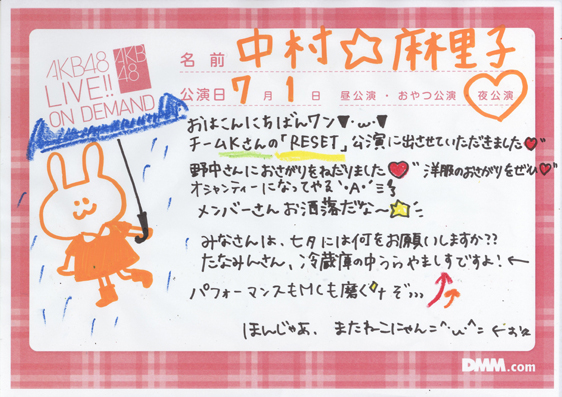 AKB48
LIVE!!
ON DEMAND
AKB
48
名前 中村☆麻里子
公演日 7月1日 昼公演・おやつ公演 夜公演
おはこんにちばんワン▼・ω・▼
チームKさんの「RESET」公演に出させていただきました♥
野中さんにおさがりをねだりました♥ 洋服のおさがりをぜひ♥
オシャンティーになってやる`・A・´ミ
メンバーさんお洒落だな～☆ミ
みなさんは、七夕には何をお願いしますか??
たなみんさん、冷蔵庫の中うらやましすですよ!←
パフォーマンスもMCも磨くぞ,,,
ほんじゃあ、またねこにゃん=^・ω・^=
DMM.com